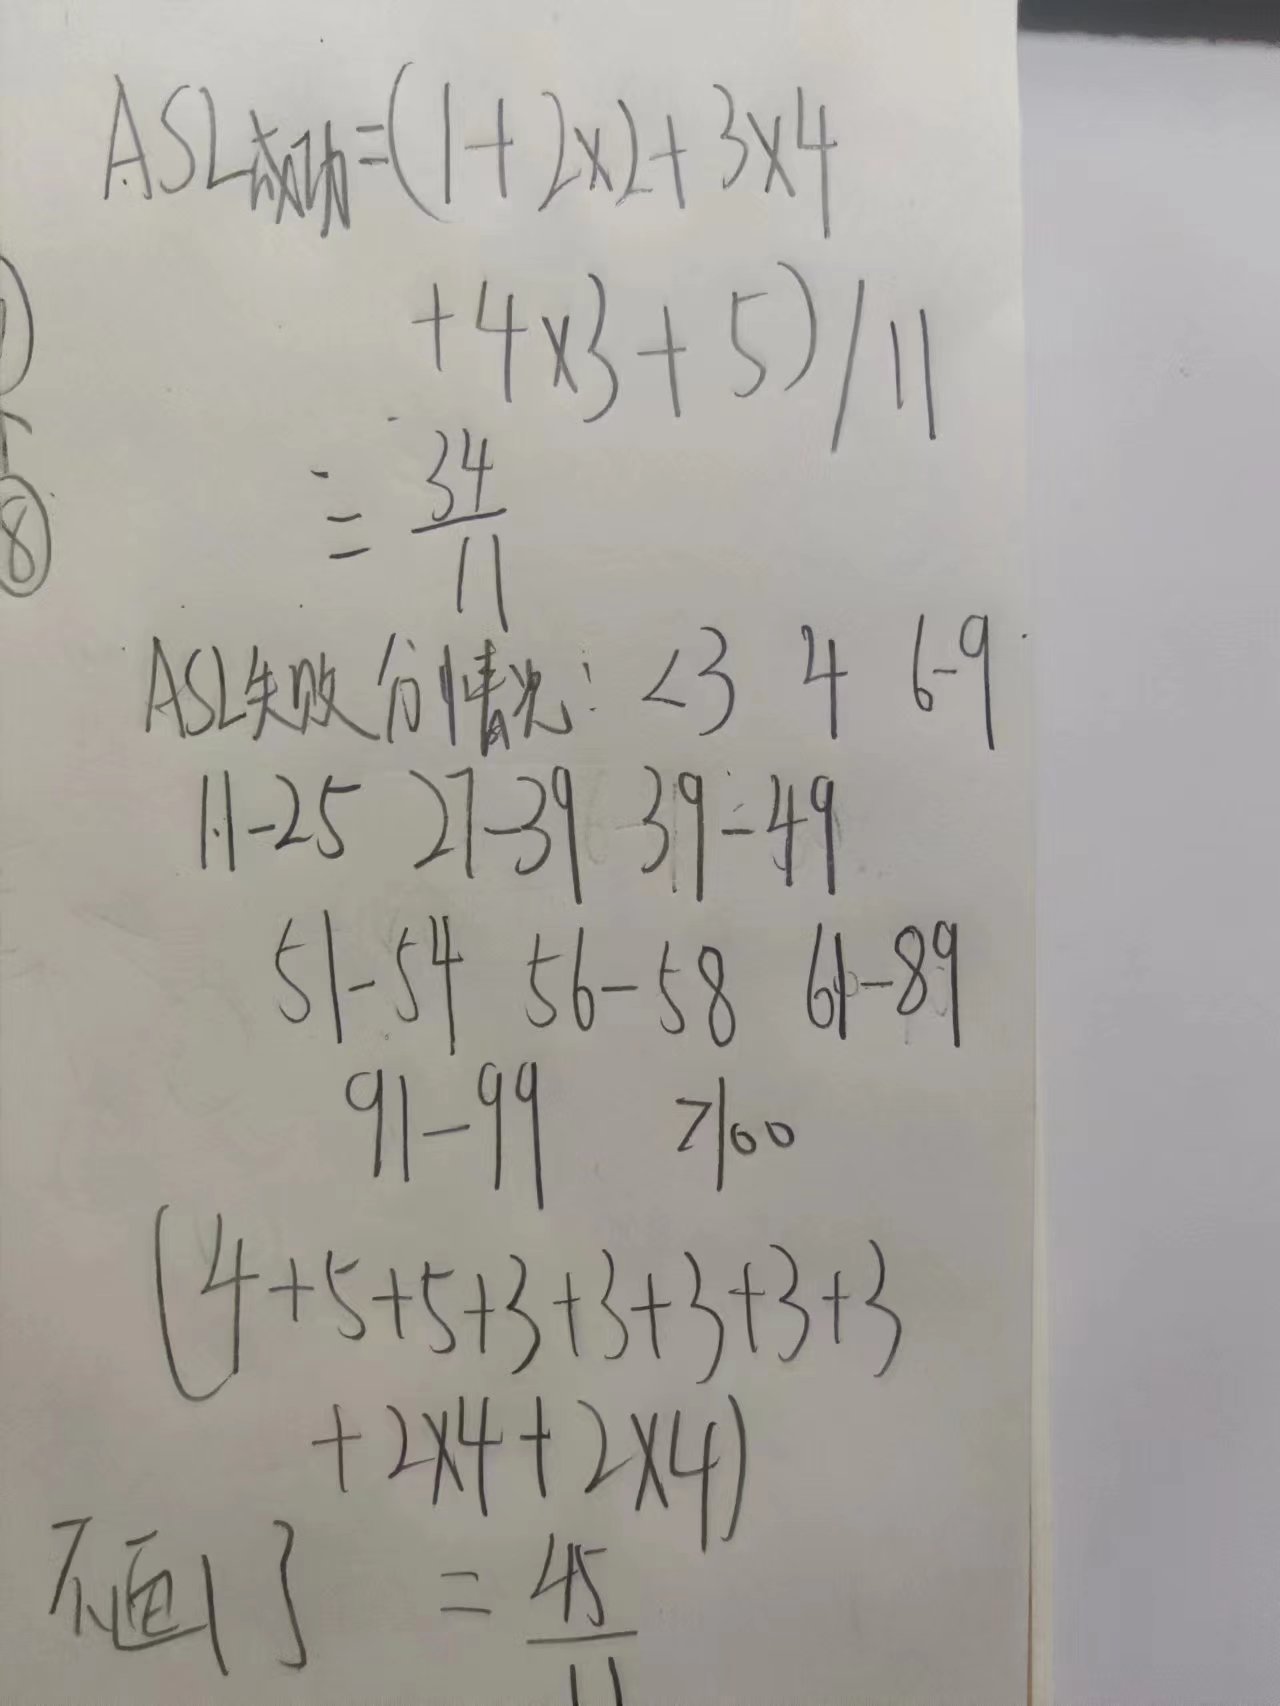 ASL成功=(1+2×2+3×4
+4×3+5)/11
⑧
=34/11
ASL失败 的情况: <3 4 6-9
11-25 27-39 39-49
51-54 56-58 61-89
91-99 >100
(4+5+5+3+3+3+3+3
+2×4+2×4)
不画了 =45/11